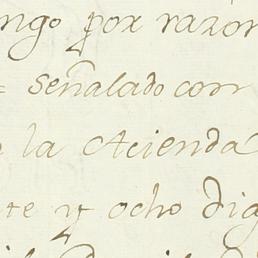 ngo por razón
= señalado con
la Acienda
te y ocho dig